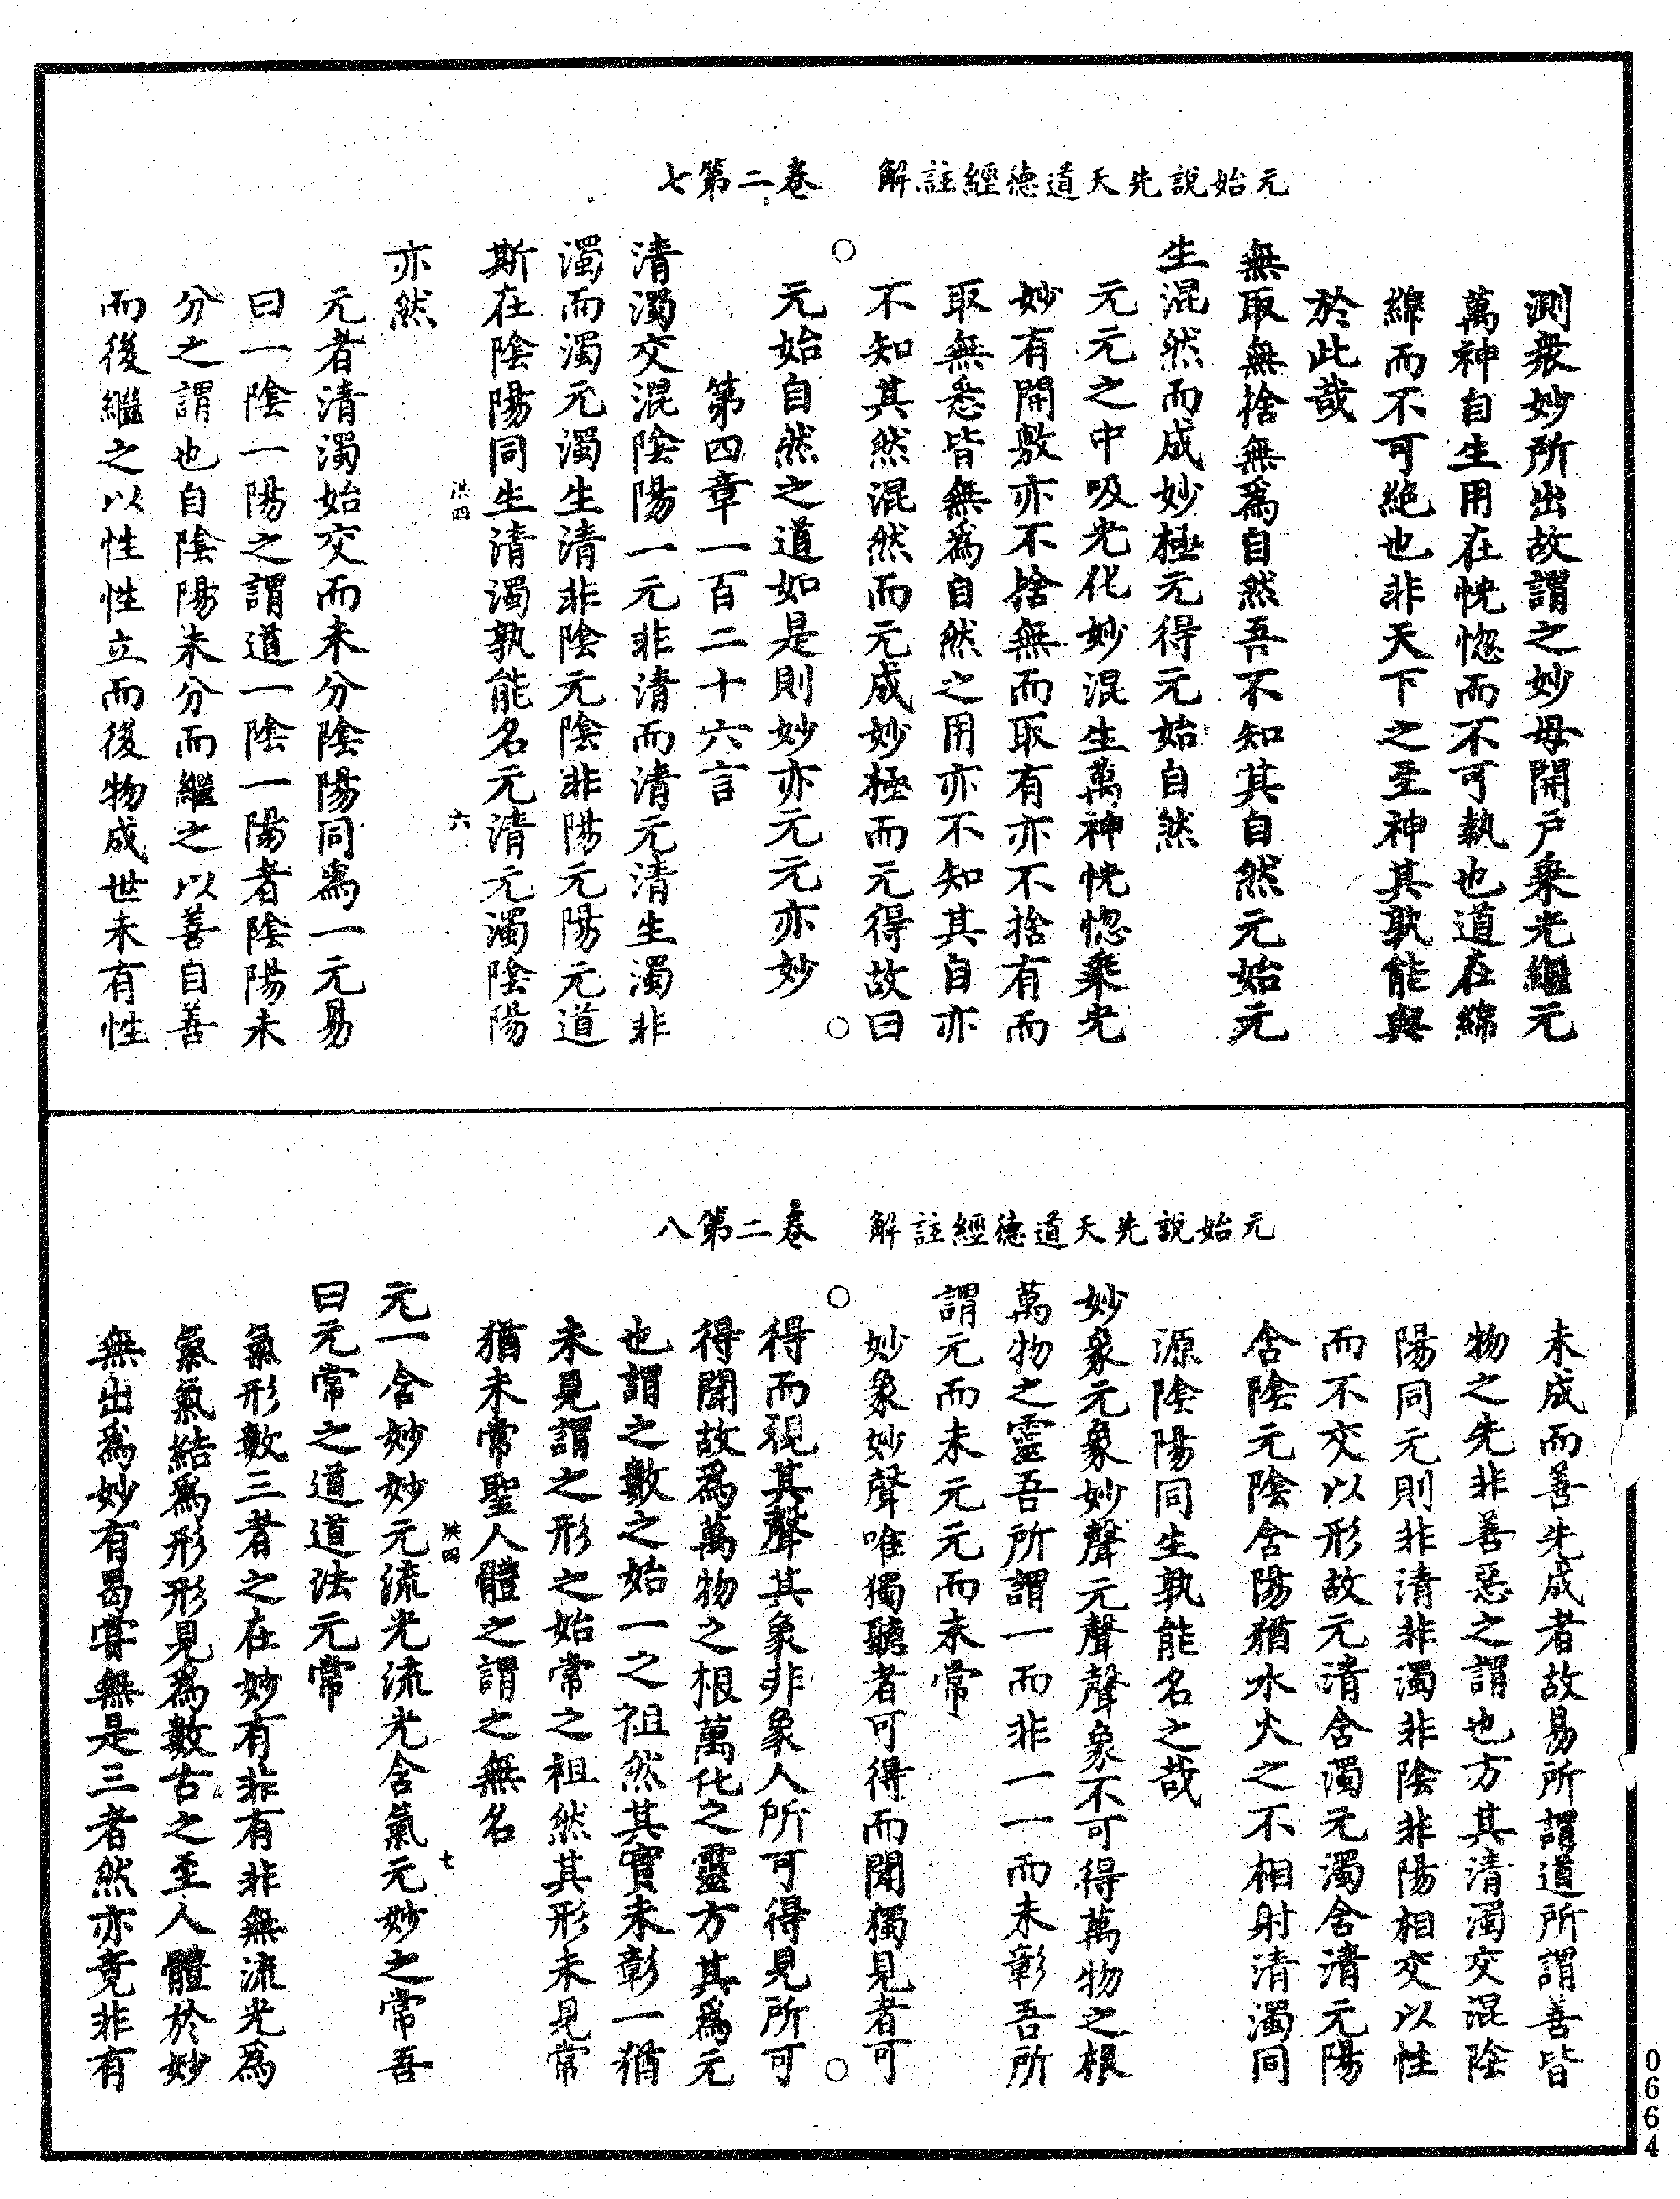 元始說先天道德經註解　卷二第七
測衆妙所出故謂之妙母開戶乗光繼元
萬神自生用在恍惚而不可執也道在綿
綿而不可絶也非天下之至神其孰能與
於此哉
無取無捨無爲自然吾不知其自然元始元
生混然而成妙極元得元始自然
元元之中吸光化妙混生萬神恍惚乗光
妙有開敷亦不捨無而取有亦不捨有而
取無悉皆無爲自然之用亦不知其自亦
不知其然混然而元成妙極而元得故曰
元始自然之道如是則妙亦元元亦妙
第四章一百二十六言
清濁交混陰陽一元非清而清元清生濁非
濁而濁元濁生清非陰元陰非陽元陽元道
斯在陰陽同生清濁孰能名元清元濁陰陽
洪四　六
亦然
元者清濁始交而未分陰陽同爲一元易
曰一陰一陽之謂道一陰一陽者陰陽未
分之謂也自陰陽未分而繼之以善自善
而後繼之以性性立而後物成世未有性
元始說先天道德經註解　卷二第八
未成而善先成者故易所謂道所謂善皆
物之先非善惡之謂也方其清濁交混陰
陽同元則非清非濁非陰非陽相交以性
而不交以形故元清含濁元濁含清元陽
含陰元陰含陽猶水火之不相射清濁同
源陰陽同生孰能名之哉
妙象元象妙聲元聲聲象不可得萬物之根
萬物之靈吾所謂一而非一一而未彰吾所
謂元而未元元而未常
妙象妙聲唯獨聽者可得而聞獨見者可
得而現其聲其象非象人所可得見所可
得聞故爲萬物之根萬化之靈方其爲元
也謂之數之始一之祖然其實未彰一猶
未見謂之形之始常之祖然其形未見常
猶未常聖人體之謂之無名
洪四　七
元一含妙妙元流光流光含氣元妙之常吾
曰元常之道道法元常
氣形數三者之在妙有非有非無流光爲
氣氣結爲形形見爲數古之至人體於妙
無出爲妙有曷嘗無是三者然亦竟非有
0664